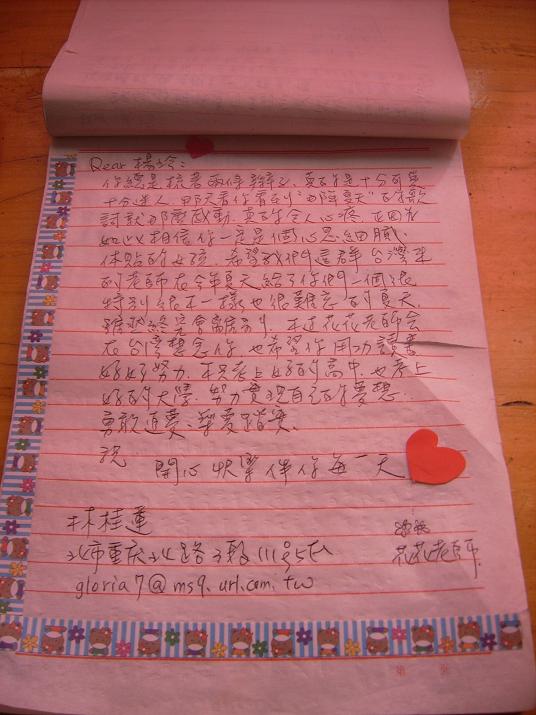 Dear 楊玲:
你總是梳著兩條辮子,真的是十分可愛
十分迷人,那天看你看到"西街夏天"的歌
詞就那麼感動,真的令人心疼,正因為
如此相信你一定是個心思細膩、
体貼的女孩,希望我們這群台灣來
的老師在今年夏天給了你們一個很
特別很不一樣也很難忘的夏天,
雖然終究會離別,不过花花老師会
在台湾想念你,也希望你用功讀書
好好努力,考上好的高中,也考上
好的大學,努力實現自己的夢想,
勇敢追夢、築夢踏實。
祝 開心快樂伴你每一天
林桂蓮 花花老師
北市重庆北路三段111號5F
gloria7@ms9.url.com.tw
第 張